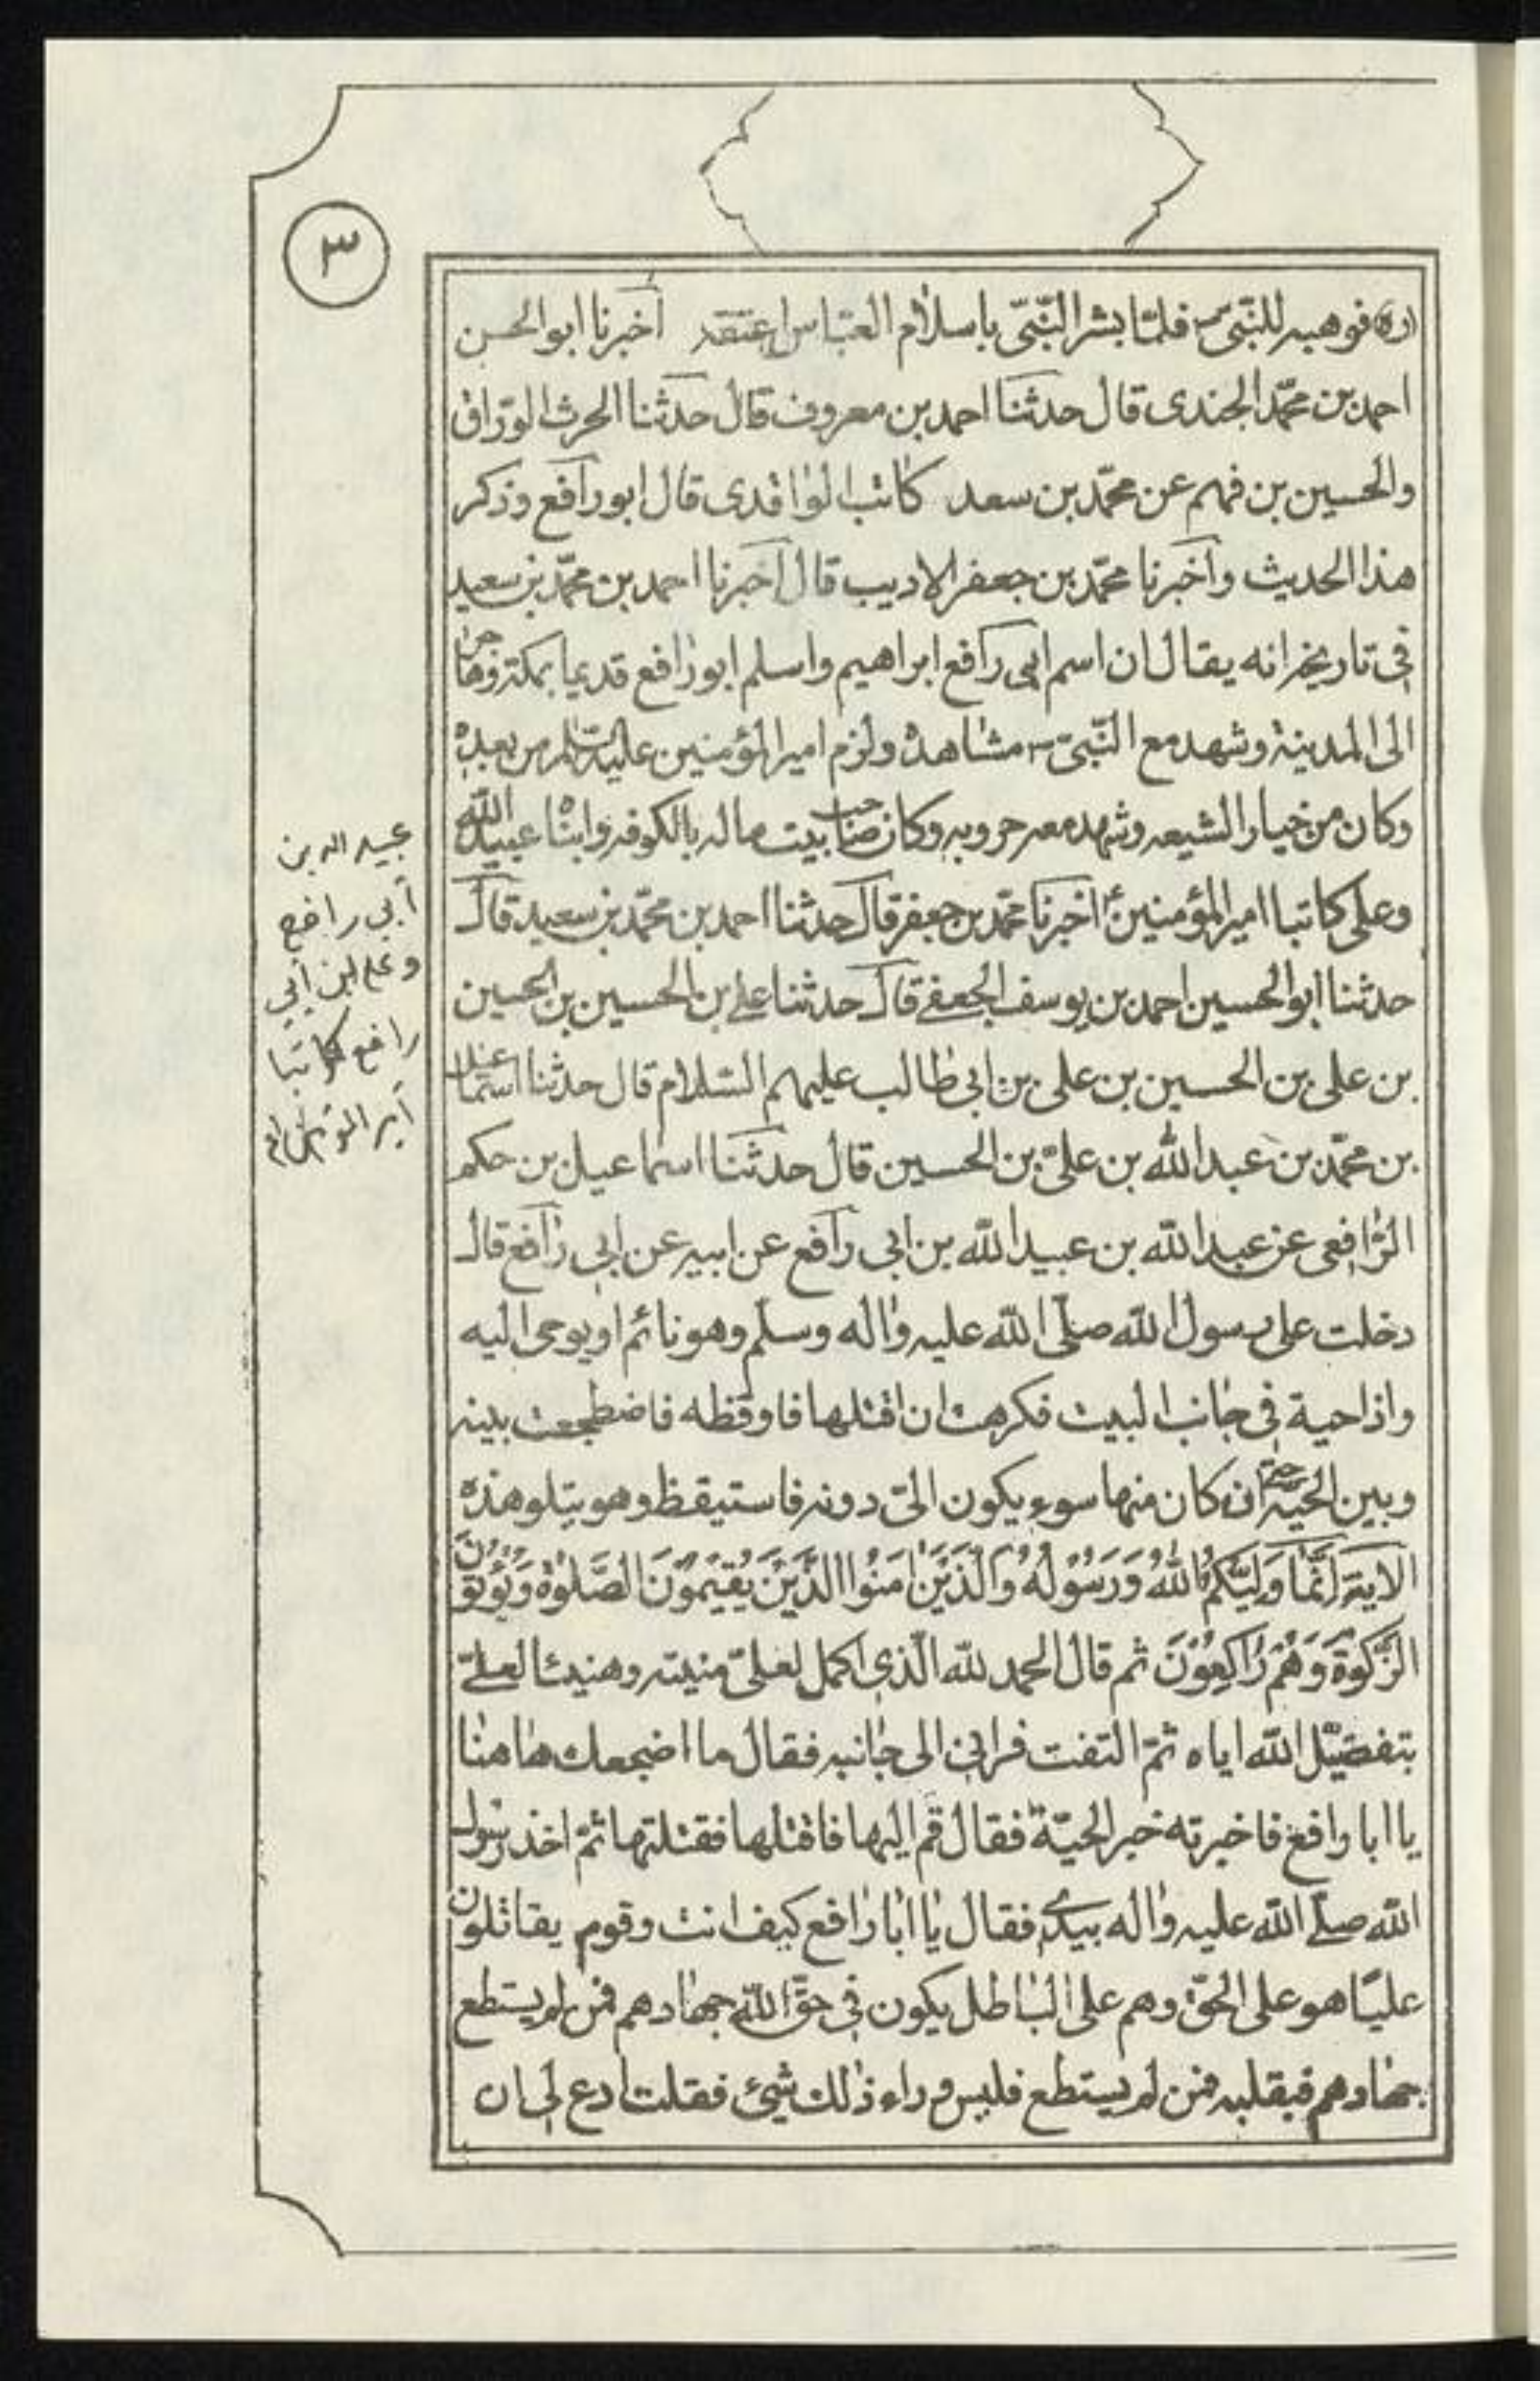 ٣
(ره) فوهبه للنّبىّ ص فلمّا بشر النّبىّ باسلام العبّاس اعتقه أخبرنا ابو الحسن
احمد بن محمّد الجندى قال حدثنا احمد بن معروف قال حدثنا الحرث الورّاق
والحسين بن فهم عن محمّد بن سعد كاتب الواقدى قال ابو رافع وذكر
هذا الحديث وأخبرنا محمّد بن جعفر الاديب قال أخبرنا احمد بن محمّد بن سعيد
فى تاريخه انه يقال ان اسم ابى رافع ابراهيم واسلم ابو رافع قديما بمكة وهاجر
الى المدينة وشهد مع النّبىّ ص مشاهده ولزم امير المؤمنين عليه السّلام من بعده
وكان من خيار الشيعه وشهد معه حروبه وكان صاحب بيت ماله بالكوفه وابناه عبيد الله
وعلى كاتبا امير المؤمنين ع أخبرنا محمّد بن جعفر قال حدثنا احمد بن محمّد بن سعيد قال
حدثنا ابو الحسين احمد بن يوسف الجعفى قال حدثنا على بن الحسين بن الحسين
بن على بن الحسين بن على بن ابى طالب عليهم السّلام قال حدثنا اسماعيل
بن محمّد بن عبد الله بن علىّ بن الحسين قال حدثنا اسماعيل بن حكم
الرّافعى عن عبد الله بن عبيد الله بن ابى رافع عن ابيه عن ابى رافع قال
دخلت على رسول الله صلّى الله عليه واله وسلّم وهو نائم او يوحى اليه
واذا حية فى جانب البيت فكرهت ان اقتلها فاوقظه فاضطجعت بينه
وبين الحيّة حتى ان كان منها سوء يكون الىّ دونه فاستيقظ وهو يتلو هذه
الاية اِنَّمَا وَلِيُّكُمُ اللهُ وَرَسُوْلُهُ وَالَّذِيْنَ اٰمَنُوا الَّذِيْنَ يُقِيْمُوْنَ الصَّلٰوةَ وَيُؤْتُوْنَ
الزَّكٰوةَ وَهُمْ رَاكِعُوْنَ ثم قال الحمد لله الّذى اكمل لعلىّ منيته وهنيئا لعلىّ
بتفضيل الله اياه ثمّ التفت فرانى الى جانبه فقال ما اضجعك هاهنا
يا ابا رافع فاخبرته خبر الحيّة فقال قم اليها فاقتلها فقتلتها ثمّ اخذ رسول
الله صلّى الله عليه واله بيدى فقال يا ابا رافع كيف انت وقوم يقاتلون
عليّا هو على الحقّ وهم على الباطل يكون فى حقّ الله جهادهم فمن لم يستطع
جهادهم فبقلبه فمن لم يستطع فليس وراء ذلك شىء فقلت ادع لى ان
عبيد الله بن
أبي رافع
وعلي ابن أبي
رافع كاتبا
أمير المؤمنين